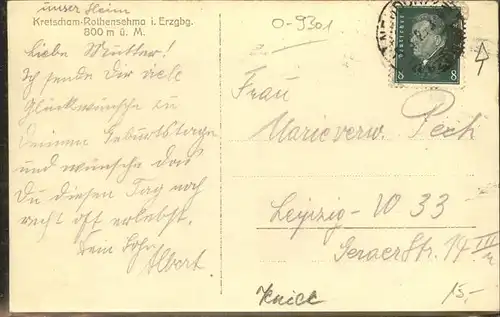 unser Heim
Kretscham-Rothensehma i. Erzgbg.
800 m ü. M.
O-9301
Liebe Mutter!
Ich sende Dir viele
Glückwünsche zu
Deinem Geburtstage
und wünsche das
Du diesen Tag noch
recht oft erlebst.
Dein Sohn
Albert
8 8
Frau
Marie verw. Pech
Leipzig-W 33
GeraerStr. 14 III
Knick
15,-